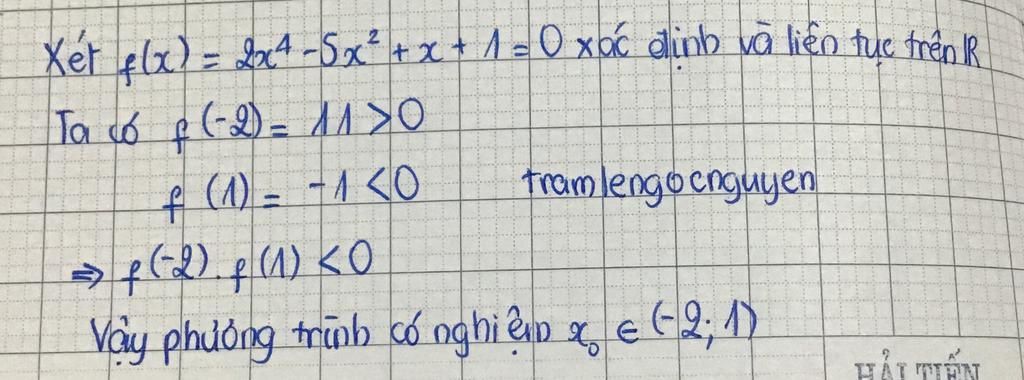 Xét f(x) = 2x⁴ - 5x² + x + 1 = 0 xác định và liên tục trên ℝ
Ta có f(-2) = 11 > 0
f(1) = -1 < 0 tramlengocnguyen
⇒ f(-2) . f(1) < 0
Vậy phương trình có nghiệm x₀ ∈ (-2; 1)
HẢI TIẾN